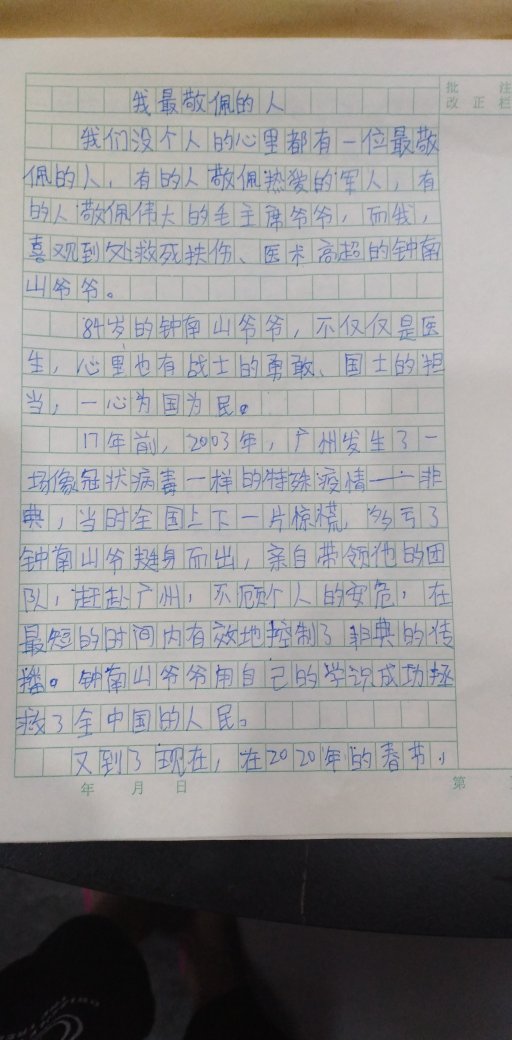 批 注
改 正 栏
我最敬佩的人
我们没个人的心里都有一位最敬
佩的人，有的人敬佩热爱的军人，有
的人敬佩伟大的毛主席爷爷，而我，
喜观到处救死扶伤、医术高超的钟南
山爷爷。
84岁的钟南山爷爷，不仅仅是医
生，心里也有战士的勇敢、国士的担
当，一心为国为民。
17年前，2003年，广州发生了一
场像冠状病毒一样的特殊疫情——非
典，当时全国上下一片惊慌，多亏了
钟南山爷挺身而出，亲自带领他的团
队，赶赴广州，不顾个人的安危，在
最短的时间内有效地控制了非典的传
播。钟南山爷爷用自己的学识成功拯
救了全中国的人民。
又到了现在，在2020年的春节，
年 月 日
第